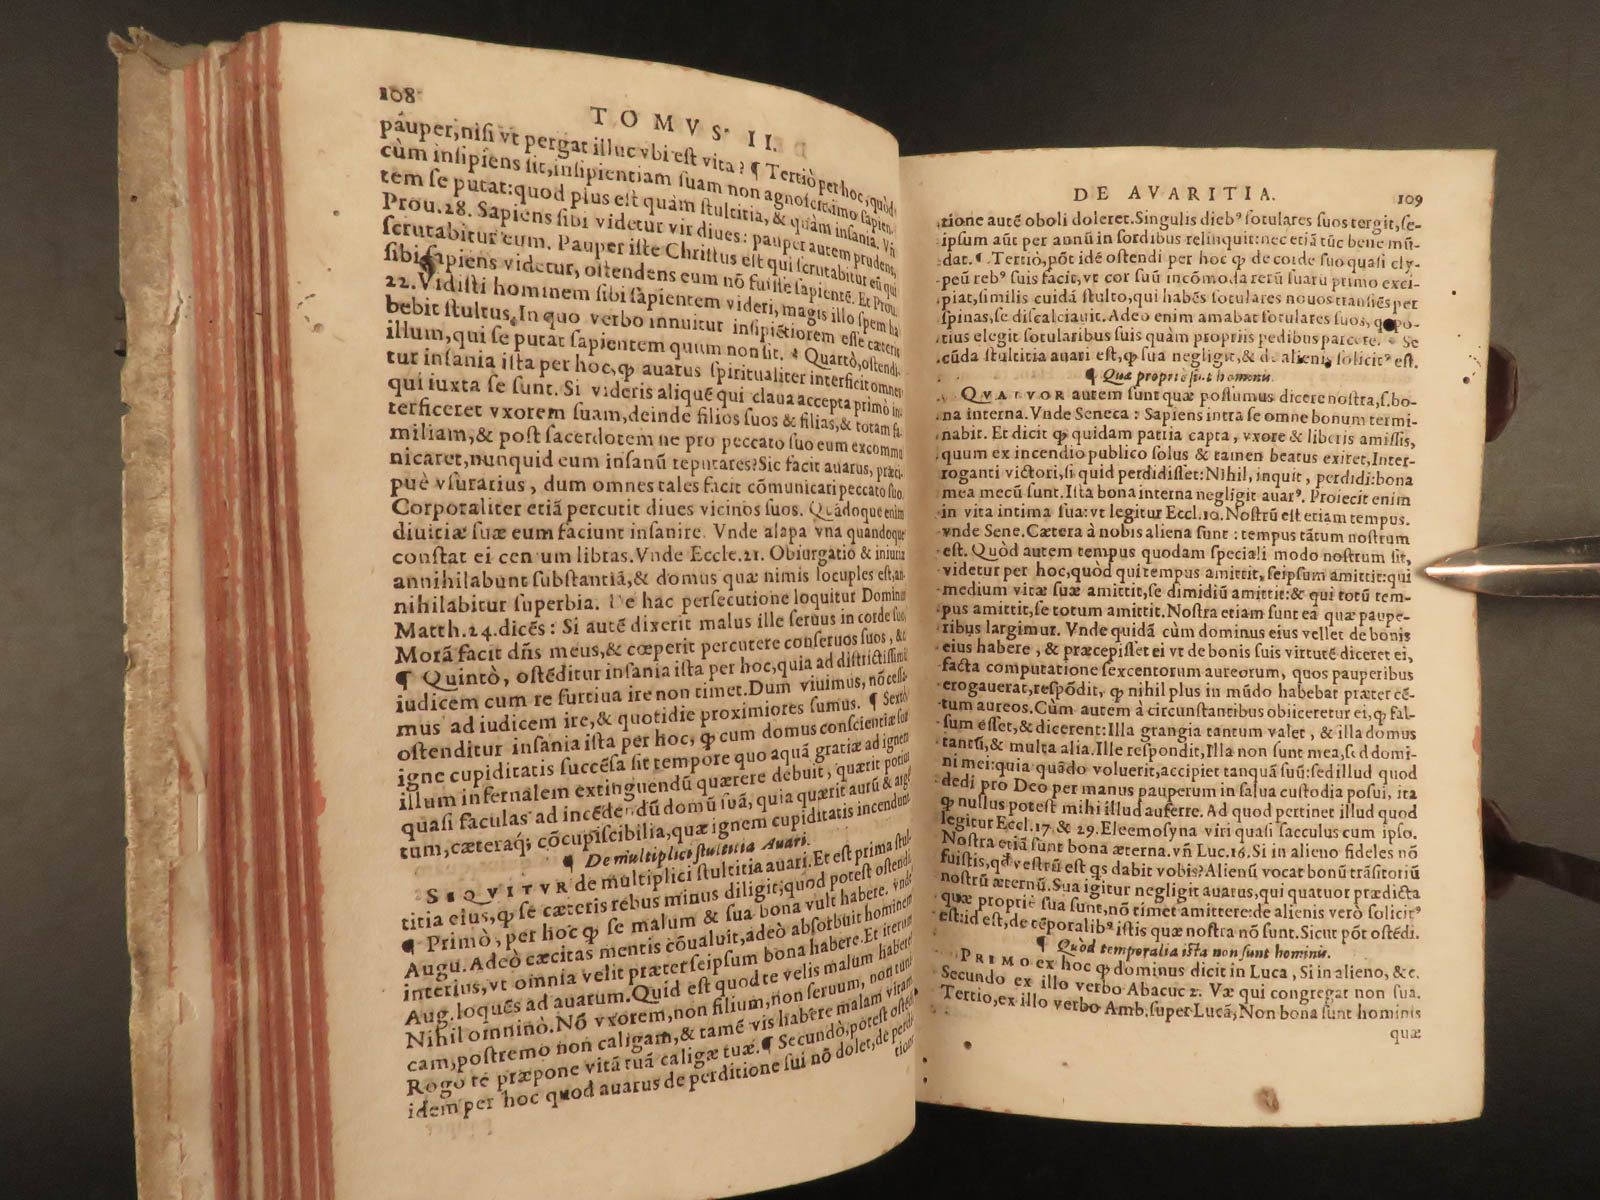 108
TOMVS II.
pauper, nisi vt pergat illuc vbi est vita? ¶ Tertiò per hoc, quòd
cùm insipiens sit, insipientiam suam non agnoscit, imo sapien-
tem se putat: quod plus est quàm stultitia, & quàm insania. Vñ
Prou. 28. Sapiens sibi videtur vir diues: pauper autem prudens,
scrutabitur eum. Pauper iste Christus est qui scrutabitur eũ qui
sibi sapiens videtur, ostendens eum nõ fuisse sapientē. Et Prou.
22. Vidisti hominem sibi sapientem videri, magis illo spem ha
bebit stultus. In quo verbo innuitur insipiētiorem esse cæteris
illum, qui se putat sapientem quum non sit. ¶ Quartò, ostendi-
tur insania ista per hoc, ꝙ auarus spiritualiter interficit omnes
qui iuxta se sunt. Si videris aliquē qui claua accepta primò in-
terficeret vxorem suam, deinde filios suos & filias, & totam fa-
miliam, & post sacerdotem ne pro peccato suo eum excommu
nicaret, nunquid eum insanũ reputares? Sic facit auarus, præci-
puè vsurarius, dum omnes tales facit cõmunicari peccato suo.
Corporaliter etiã percutit diues vicinos suos. Quãdoque enim
diuitiæ suæ eum faciunt insanire. Vnde alapa vna quandoque
constat ei cen um libras. Vnde Eccle. 21. Obiurgatio & iniuria
annihilabunt substantiã, & domus quæ nimis locuples est, an-
nihilabitur superbia. De hac persecutione loquitur Dominus
Matth. 24. dicēs: Si autē dixerit malus ille seruus in corde suo,
Morã facit dñs meus, & cœperit percutere conseruos suos, &c
¶ Quintò, ostēditur insania ista per hoc, quia ad districtissimũ
iudicem cum re furtiua ire non timet. Dum viuimus, nõ cessa-
mus ad iudicem ire, & quotidie proximiores sumus. ¶ Sextò
ostenditur insania ista per hoc, ꝙ cum domus conscientiæ suæ
igne cupiditatis succēsa sit tempore quo aquã gratiæ ad ignem
illum infernalem extinguendũ quærere debuit, quærit potius
quasi faculas ad incēdendũ domũ suã, quia quærit aurũ & argē
tum, cæteraq́; cõcupiscibilia, quæ ignem cupiditatis incendunt.
¶ De multiplici stultitia Auari.
SEQVITVR de multiplici stultitia auari. Et est prima stul-
titia eius, ꝙ se cæteris rebus minus diligit; quod potest ostendi
¶ Primò, per hoc ꝙ se malum & sua bona vult habere. vnde
Augu. Adeò cæcitas mentis cõualuit, adeò absorbuit hominem
interius, vt omnia velit præter seipsum bona habere. Et iterum
Aug. loquēs ad auarum. Quid est quod te velis malum habere?
Nihil omnino. Nõ vxorem, non filium, non seruum, non tuni-
cam, postremo non caligam, & tamē vis habere malam vitam.
Rogo te præpone vitã tuã caligæ tuæ. ¶ Secundò, potest ostēdi
idem per hoc quod auarus de perditione sui nõ dolet, de perdi-
tione
DE AVARITIA.
109
tione autē oboli doleret. Singulis diebꝰ sotulares suos tergit, se-
ipsum aũt per annũ in sordibus relinquit: nec etiã tũc bene mũ-
dat. ¶ Tertiò, põt idē ostendi per hoc ꝙ de corde suo quasi cly-
peũ rebꝰ suis facit, vt cor suũ incõmoda rerũ suarũ primo exci-
piat, similis cuidã stulto, qui habēs sotulares nouos transiēs per
spinas, se discalciauit. Adeo enim amabat sotulares suos, q po-
tius elegit sotularibus suis quàm propriis pedibus parcere. ¶ Se
cũda stultitia auari est, ꝙ sua negligit, & de alienis solicitꝰ est.
¶ Quæ propriè sint hominis.
QVATVOR autem sunt quæ possumus dicere nostra, s. bo-
na interna. Vnde Seneca: Sapiens intra se omne bonum termi-
nabit. Et dicit ꝙ quidam patria capta, vxore & liberis amissis,
quum ex incendio publico solus & tamen beatus exiret, Inter-
roganti victori, si quid perdidisset: Nihil, inquit, perdidi: bona
mea mecũ sunt. Ista bona interna negligit auarꝰ. Proiecit enim
in vita intima sua: vt legitur Eccl. 10. Nostrũ est etiam tempus.
vnde Sene. Cætera à nobis aliena sunt: tempus tãtum nostrum
est. Quòd autem tempus quodam speciali modo nostrum sit,
videtur per hoc, quòd qui tempus amittit, seipsum amittit: qui
medium vitæ suæ amittit, se dimidiũ amittit: & qui totũ tem-
pus amittit, se totum amittit. Nostra etiam sunt ea quæ paupe-
ribus largimur. Vnde quidã cùm dominus eius vellet de bonis
eius habere, & præcepisset ei vt de bonis suis virtutē diceret ei,
facta computatione sexcentorum aureorum, quos pauperibus
erogauerat, respõdit, ꝙ nihil plus in mũdo habebat præter cē-
tum aureos. Cùm autem à circunstantibus obiiceretur ei, ꝙ fal-
sum esset, & dicerent: Illa grangia tantum valet, & illa domus
tantũ, & multa alia. Ille respondit, Illa non sunt mea, sed domi-
ni mei: quia quãdo voluerit, accipiet tanquã suũ: sed illud quod
dedi pro Deo per manus pauperum in salua custodia posui, ita
ꝙ nullus potest mihi illud auferre. Ad quod pertinet illud quod
legitur Eccl. 17. & 29. Eleemosyna viri quasi sacculus cum ipso.
Nostra etiã sunt bona æterna. vñ Luc. 16. Si in alieno fideles nõ
fuistis, qđ vestrũ est qs dabit vobis? Alienũ vocat bonũ trãsitoriũ
nostrũ æternũ. Sua igitur negligit auarus, qui quatuor prædicta
quæ propriè sua sunt, nõ timet amittere: de alienis verò solicitꝰ
est: id est, de tēporalibꝰ istis quæ nostra nõ sunt. Sicut põt ostēdi.
¶ Quòd temporalia ista non sunt hominis.
PRIMO ex hoc ꝙ dominus dicit in Luca, Si in alieno, &c.
Secundo ex illo verbo Abacuc 2. Væ qui congregat non sua.
Tertio, ex illo verbo Amb. super Lucã, Non bona sunt hominis
quæ